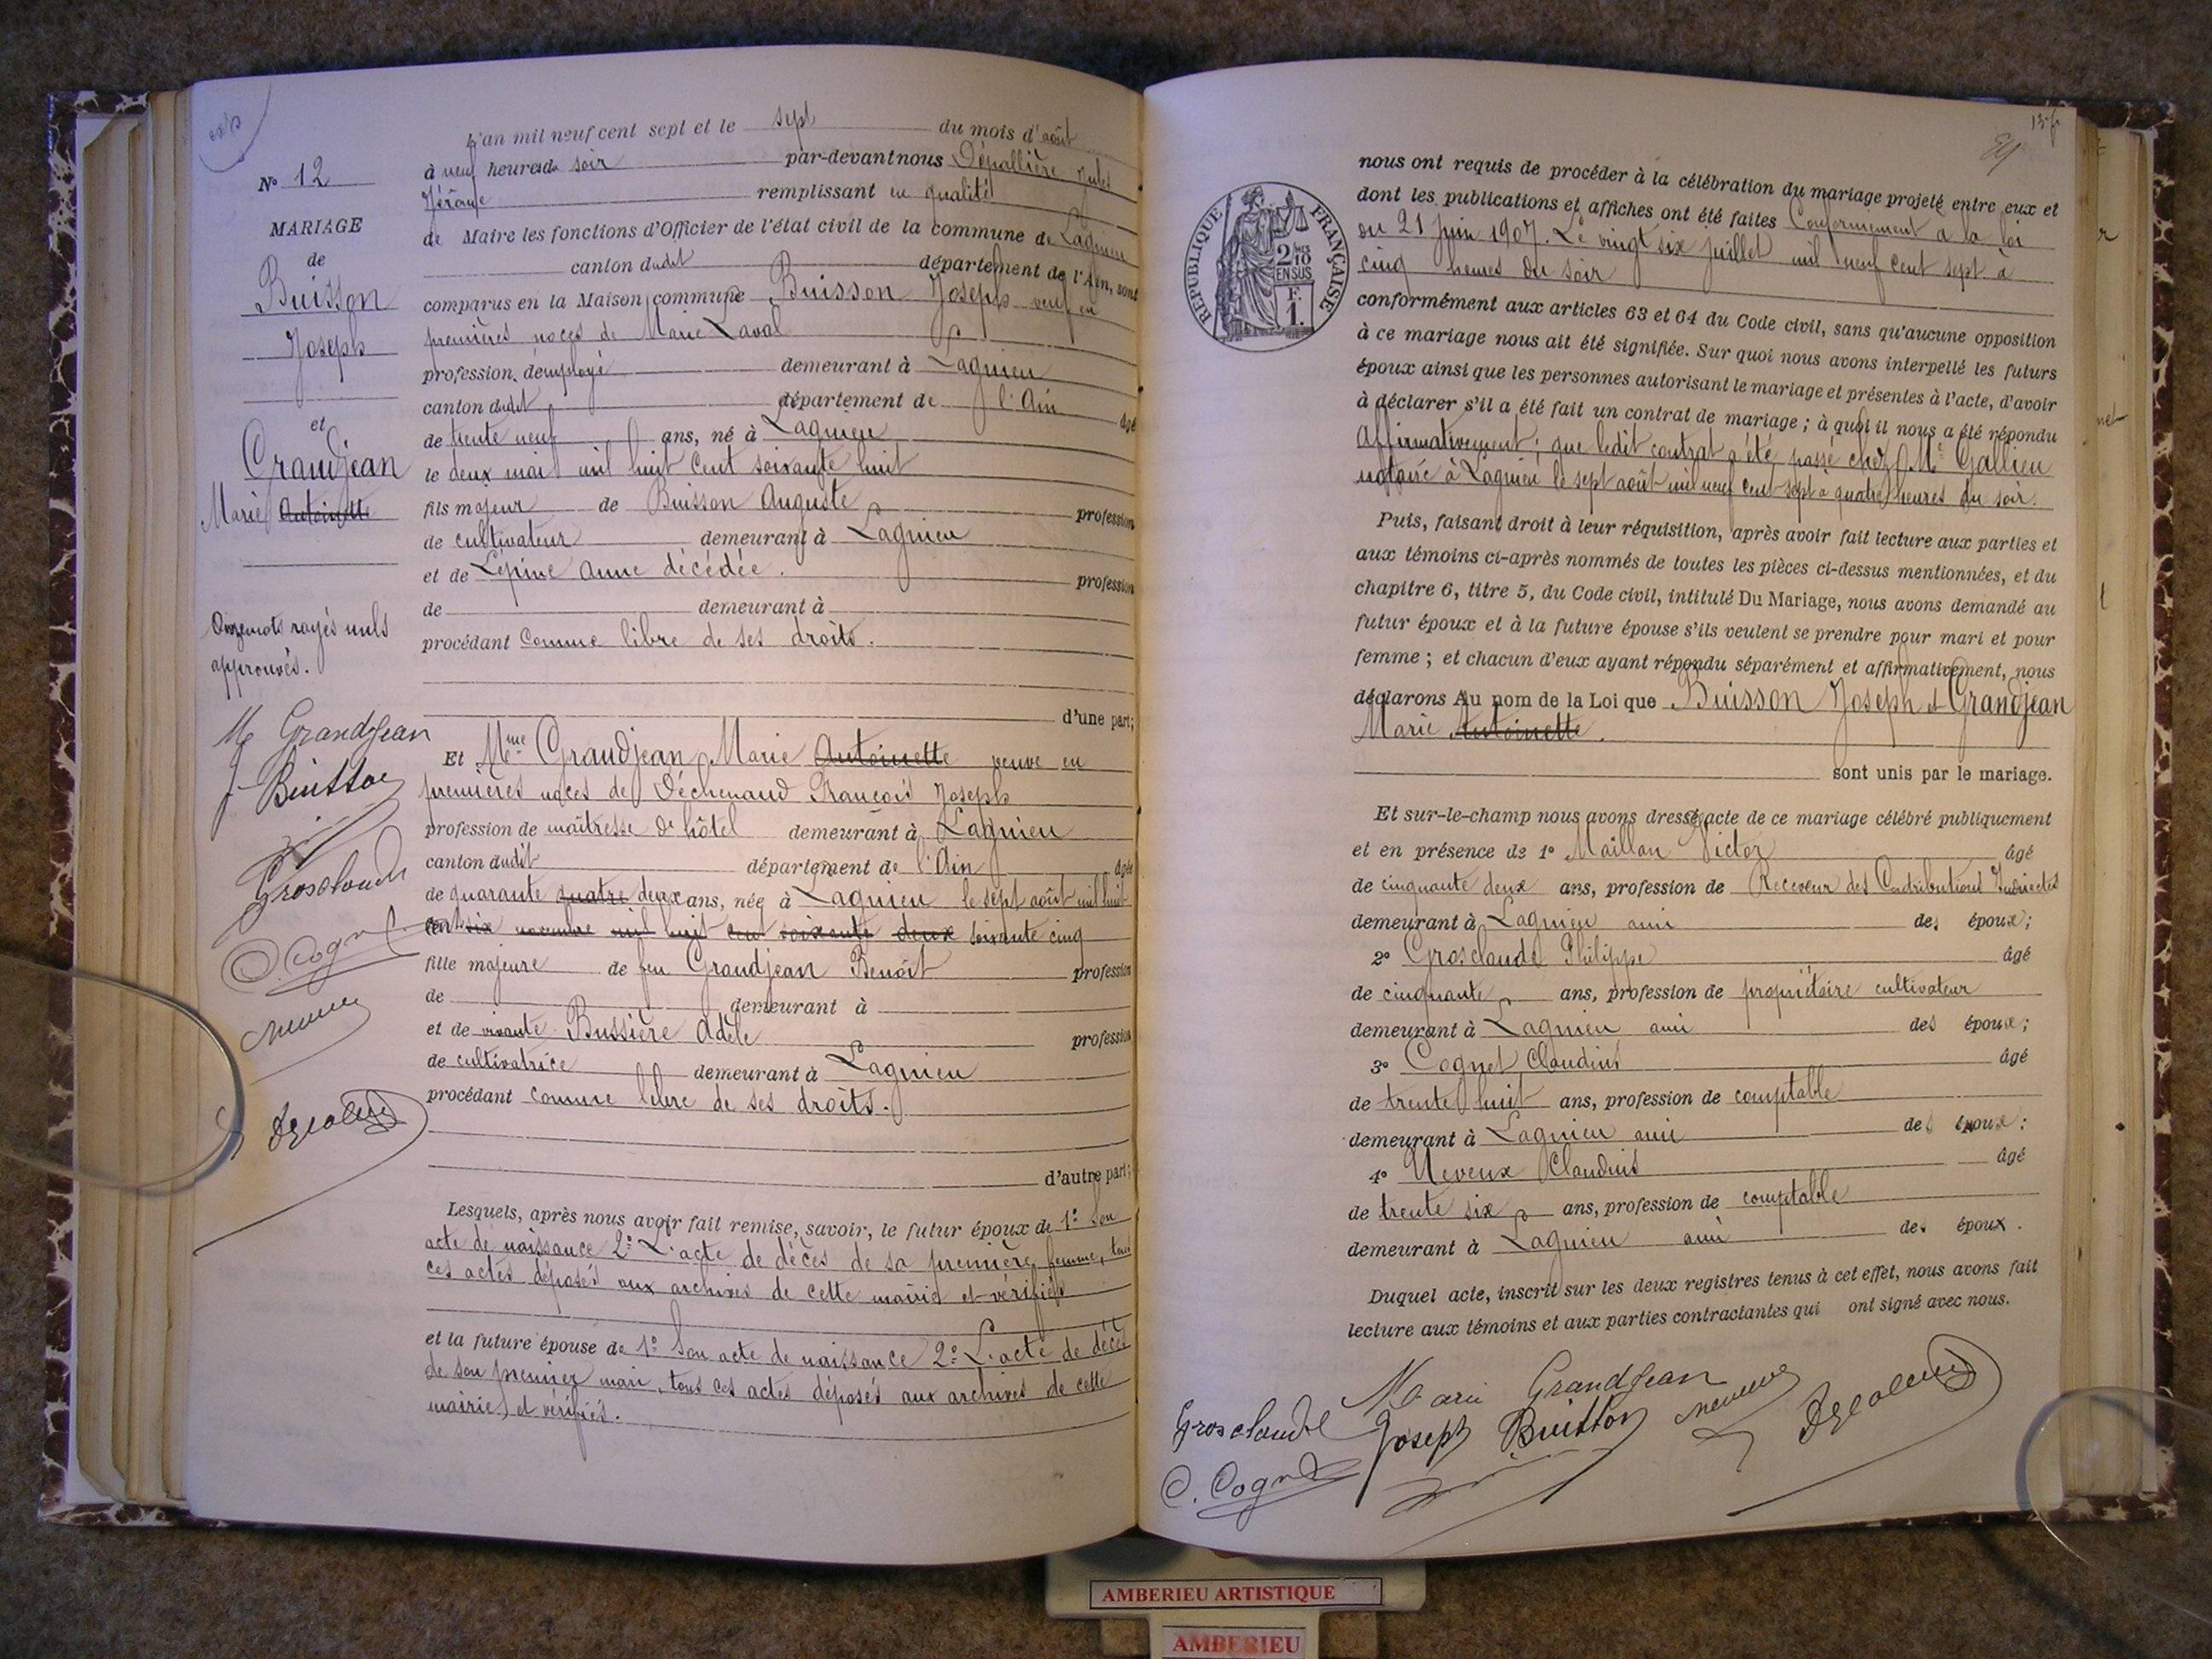 N° 12
MARIAGE
de
Buisson
Joseph
et
Grandjean
Marie Antoinette
Onze mots rayés nuls
approuvés.
M Grandjean
J Buisson
Grosclaude
C. Cognet
L'an mil neuf cent sept et le sept du mois d'août
à neuf heures du soir par-devant nous Dépallière Jules
Jérôme remplissant en qualité
de Maire les fonctions d'Officier de l'état civil de la commune de Lagnieu
canton dudit département de l'Ain, sont
comparus en la Maison commune Buisson Joseph veuf en
premières noces de Marie Laval
profession d'employé demeurant à Lagnieu
canton dudit département de l'Ain âgé
de trente neuf ans, né à Lagnieu
le deux mai mil huit cent soixante huit
fils majeur de Buisson Auguste profession
de cultivateur demeurant à Lagnieu
et de Lépine Anne décédée. profession
de demeurant à
procédant comme libre de ses droits.
d'une part;
Et Mme Grandjean Marie Antoinette veuve en
premières noces de Déchenaud François Joseph
profession de maîtresse d'hôtel demeurant à Lagnieu
canton dudit département de l'Ain âgée
de quarante quatre deux ans, née à Lagnieu le sept août mil huit
cent six novembre mil huit cent soixante deux soixante cinq
fille majeure de feu Grandjean Benoît profession
de demeurant à
et de vivante Bussière Adèle profession
de cultivatrice demeurant à Lagnieu
procédant comme libre de ses droits.
d'autre part;
Lesquels, après nous avoir fait remise, savoir, le futur époux de 1° Son
acte de naissance 2° L'acte de décès de sa première femme, tous
ces actes déposés aux archives de cette mairie et vérifiés
et la future épouse de 1° Son acte de naissance 2° L'acte de décès
de son premier mari, tous ces actes déposés aux archives de cette
mairie et vérifiés.
RÉPUBLIQUE FRANÇAISE
2 10
EN SUS
F.
1.
nous ont requis de procéder à la célébration du mariage projeté entre eux et
dont les publications et affiches ont été faites Conformément à la loi
du 21 Juin 1907. Le vingt six juillet mil neuf cent sept à
cinq heures du soir
conformément aux articles 63 et 64 du Code civil, sans qu'aucune opposition
à ce mariage nous ait été signifiée. Sur quoi nous avons interpellé les futurs
époux ainsi que les personnes autorisant le mariage et présentes à l'acte, d'avoir
à déclarer s'il a été fait un contrat de mariage ; à quoi il nous a été répondu
Affirmativement ; que ledit contrat a été passé chez Me Gallieu
notaire à Lagnieu le sept août mil neuf cent sept à quatre heures du soir.
Puis, faisant droit à leur réquisition, après avoir fait lecture aux parties et
aux témoins ci-après nommés de toutes les pièces ci-dessus mentionnées, et du
chapitre 6, titre 5, du Code civil, intitulé Du Mariage, nous avons demandé au
futur époux et à la future épouse s'ils veulent se prendre pour mari et pour
femme ; et chacun d'eux ayant répondu séparément et affirmativement, nous
déclarons Au nom de la Loi que Buisson Joseph et Grandjean
Marie Antoinette.
sont unis par le mariage.
Et sur-le-champ nous avons dressé acte de ce mariage célébré publiquement
et en présence de 1° Maillan Victor âgé
de cinquante deux ans, profession de Receveur des Contributions Indirectes
demeurant à Lagnieu ami des époux ;
2° Grosclaude Philippe âgé
de cinquante ans, profession de propriétaire cultivateur
demeurant à Lagnieu ami des époux ;
3° Cognet Claudius âgé
de trente huit ans, profession de comptable
demeurant à Lagnieu ami des époux ;
4° Neveux Claudius âgé
de trente six ans, profession de comptable
demeurant à Lagnieu ami des époux.
Duquel acte, inscrit sur les deux registres tenus à cet effet, nous avons fait
lecture aux témoins et aux parties contractantes qui ont signé avec nous.
Marie Grandjean
Grosclaude Joseph Buisson
C. Cognet
AMBERIEU ARTISTIQUE
AMBERIEU